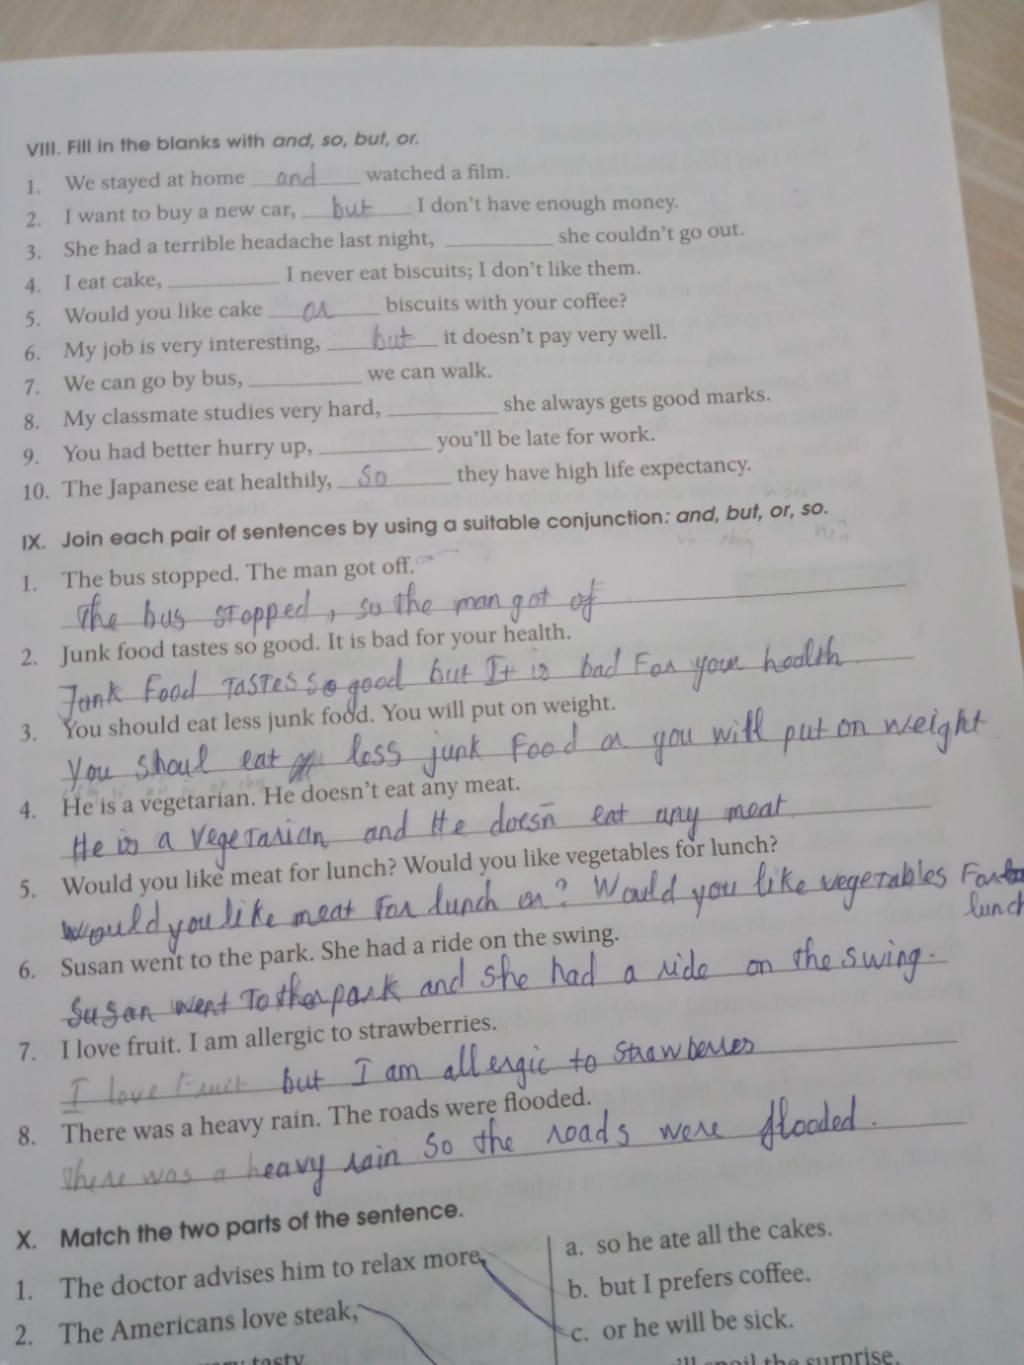 VIII. Fill in the blanks with and, so, but, or.
1. We stayed at home and watched a film.
2. I want to buy a new car, but I don't have enough money.
3. She had a terrible headache last night, __________ she couldn't go out.
4. I eat cake, __________ I never eat biscuits; I don't like them.
5. Would you like cake or biscuits with your coffee?
6. My job is very interesting, but it doesn't pay very well.
7. We can go by bus, __________ we can walk.
8. My classmate studies very hard, __________ she always gets good marks.
9. You had better hurry up, __________ you'll be late for work.
10. The Japanese eat healthily, So they have high life expectancy.
IX. Join each pair of sentences by using a suitable conjunction: and, but, or, so.
nên
1. The bus stopped. The man got off.
The bus stopped, so the man got of
2. Junk food tastes so good. It is bad for your health.
Junk Food Tastes so good but It is bad For your health
3. You should eat less junk food. You will put on weight.
You shoul eat less junk Food or you will put on weight
4. He is a vegetarian. He doesn't eat any meat.
He is a Vegetarian and He doesn eat any meat
5. Would you like meat for lunch? Would you like vegetables for lunch?
Would you like meat For lunch or? Would you like vegetables For
lunch
6. Susan went to the park. She had a ride on the swing.
Susan went To the park and She had a ride on the swing.
7. I love fruit. I am allergic to strawberries.
I love Fruit but I am allergic to strawberres
8. There was a heavy rain. The roads were flooded.
There was a heavy rain So the roads were flooded.
X. Match the two parts of the sentence.
1. The doctor advises him to relax more,
a. so he ate all the cakes.
b. but I prefers coffee.
2. The Americans love steak,
c. or he will be sick.
tasty
the surprise.